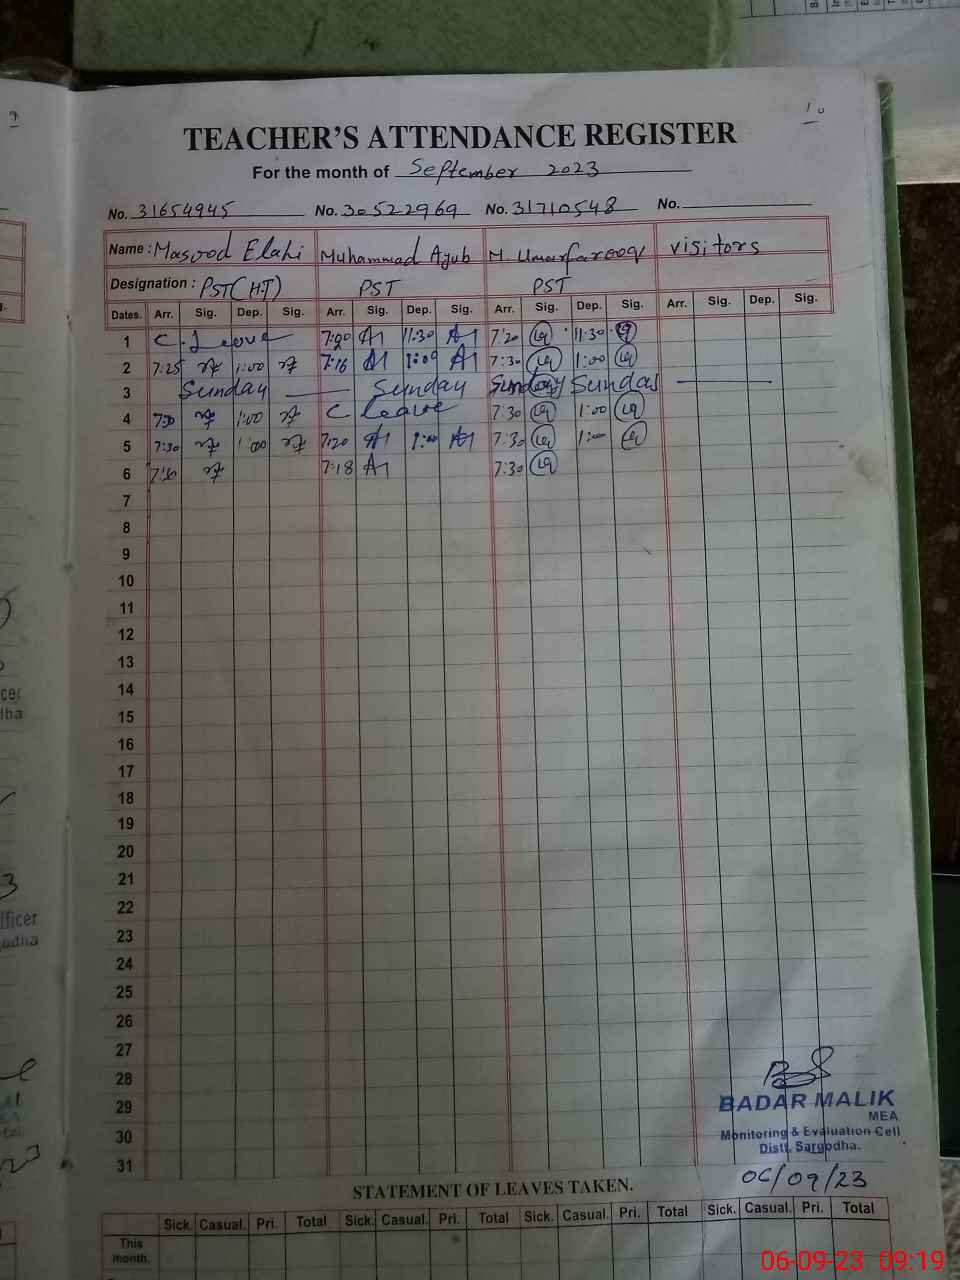 10
TEACHER'S ATTENDANCE REGISTER
For the month of September 2023
No. 31654945 No. 30522969 No. 31710548 No.
Name : Masood Elahi Muhammad Ayub M. Umarfarooq visitors
Designation : PST(HT) PST PST
Dates. Arr. Sig. Dep. Sig. Arr. Sig. Dep. Sig. Arr. Sig. Dep. Sig. Arr. Sig. Dep. Sig.
1 C. Leave 7:20 11:30 7:20 11:30
2 7:25 1:00 7:16 1:09 7:30 1:00
3 Sunday Sunday Sunday Sunday
4 1:00 C leave 7:30 1:00
5 7:30 1:00 7:20 1:00 7:30 1:00
6 7:18 7:30
7
8
9
10
11
12
13
14
15
16
17
18
19
20
21
22
23
24
25
26
27
28
29
30
31
BADAR MALIK
MEA
Monitoring & Evaluation Cell
Distt. Sargodha.
06/09/23
STATEMENT OF LEAVES TAKEN.
Sick. Casual. Pri. Total Sick. Casual. Pri. Total Sick. Casual. Pri. Total Sick. Casual. Pri. Total
This
month.
06-09-23 09:19